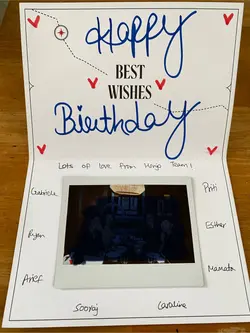 Happy
BEST
WISHES
Birthday
Lots of love from Mojo Team!
Gabriele
Priti
Ryan
Esther
Arief
Mamata
Sooraj
Caroline